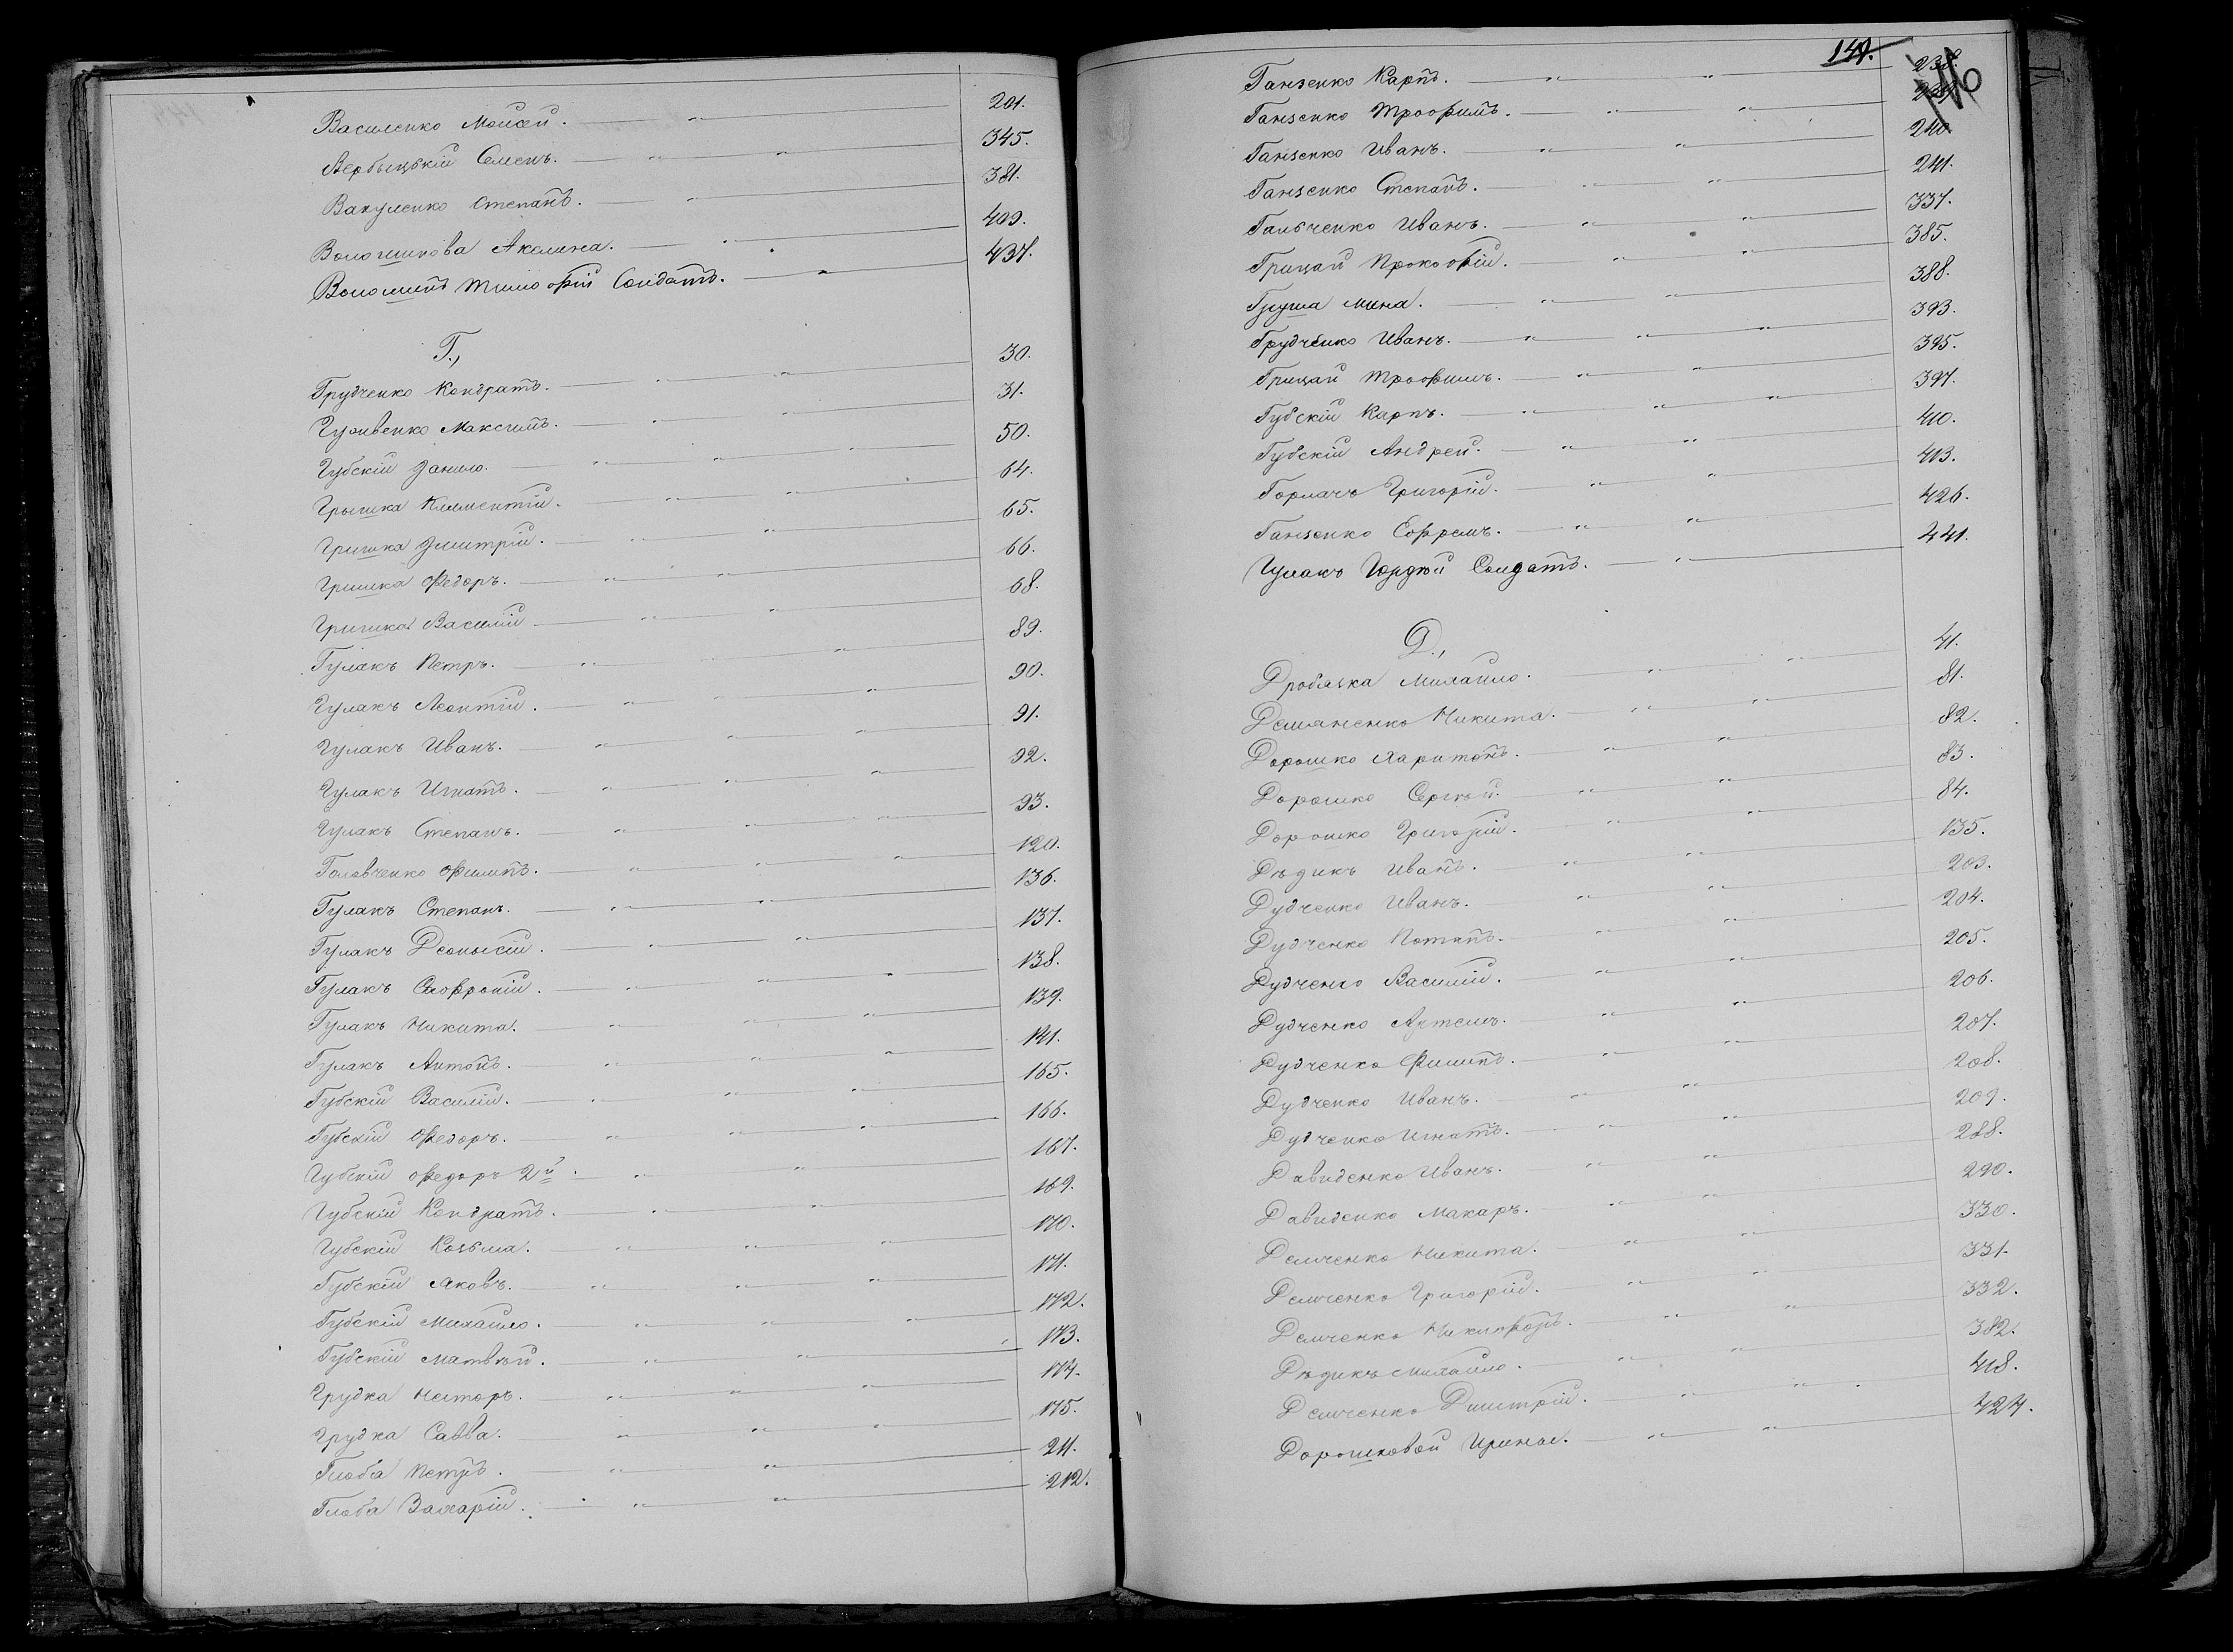 Василенко Мойсей. 201.
Вербыцькій Семенъ. 345.
Вакуленко Степанъ. 381.
Волошинова Акелина. 409.
Волошинъ Тимофій Солдатъ. 437.
Г.,
Грудченко Кондратъ. 30.
Гуривенко Максимъ. 31.
Губскій Данило. 50.
Грышка Климентій. 64.
Гришка Дмитрій. 65.
Гришка Федоръ. 66.
Гришка Василій 68.
Гулакъ Петръ. 89.
Гулакъ Леонтій. 90.
Гулакъ Иванъ. 91.
Гулакъ Игнатъ. 92.
Гулакъ Степанъ. 93.
Головченко Филипъ. 120.
Гулакъ Степанъ. 136.
Гулакъ Деонысій. 137.
Гулакъ Софроній. 138.
Гулакъ Никита. 139.
Гулакъ Антонъ. 141.
Губскій Василій. 165.
Губскій Федоръ. 166.
Губскій Федоръ 2й. 167.
Губскій Кондратъ. 169.
Губскій Козьма. 170.
Губскій Яковъ. 171.
Губскій Михайло. 172.
Губскій Матвѣй. 173.
Грудка Несторъ. 174.
Грудка Савва. 175.
Глоба Петръ. 211.
Глоба Захарій. 212.
149.
146
Ганзенко Карпъ. 238.
Ганзенко Трофимъ. 239.
Ганзенко Иванъ. 240.
Ганзенко Степанъ. 241.
Гальченко Иванъ. 337.
Грицай Прокофій. 385.
Груша Мина. 388.
Грудченко Иванъ. 393.
Грицай Трофимъ. 395.
Губскій Карпъ. 397.
Губскій Андрей. 410.
Горлачъ Григорій. 413.
Ганзенко Ефремъ. 426.
Гулакъ Гордѣй Солдатъ. 441.
Д.,
Дробязка Михайло. 41.
Демяненко Никита. 81.
Дорошко Харитонъ. 82.
Дорошко Сергѣй. 83.
Дорошко Григорій. 84.
Дѣдикъ Иванъ. 135.
Дудченко Иванъ. 203.
Дудченко Потапъ. 204.
Дудченко Василій. 205.
Дудченко Артемъ. 206.
Дудченко Филипъ. 207.
Дудченко Иванъ. 208.
Дудченко Игнатъ. 209.
Давиденко Иванъ. 288.
Давиденко Макаръ. 290.
Демченко Никита. 330.
Демченко Григорій. 331.
Демченко Никифоръ. 332.
Дѣдикъ Михайло. 382.
Демченко Димитрій. 418.
Дорошковой Ирины. 424.